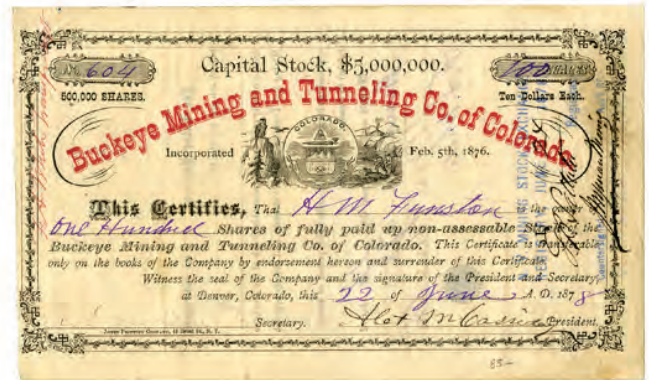 No. 604
Capital Stock, $5,000,000.
100 SHARES
500,000 SHARES.
Ten Dollars Each.
Buckeye Mining and Tunneling Co. of Colorado
COLORADO.
Incorporated
Feb. 5th, 1876.
This Certifies, That H M Funston is the
One Hundred Shares of fully paid up non-assessable Stock of the
Buckeye Mining and Tunneling Co. of Colorado. This Certificate is transferable
only on the books of the Company by endorsement hereon and surrender of this Certificate.
Witness the seal of the Company and the signature of the President and Secretary,
at Denver, Colorado, this 22 of June A. D. 1878
Secretary.
President.
85-